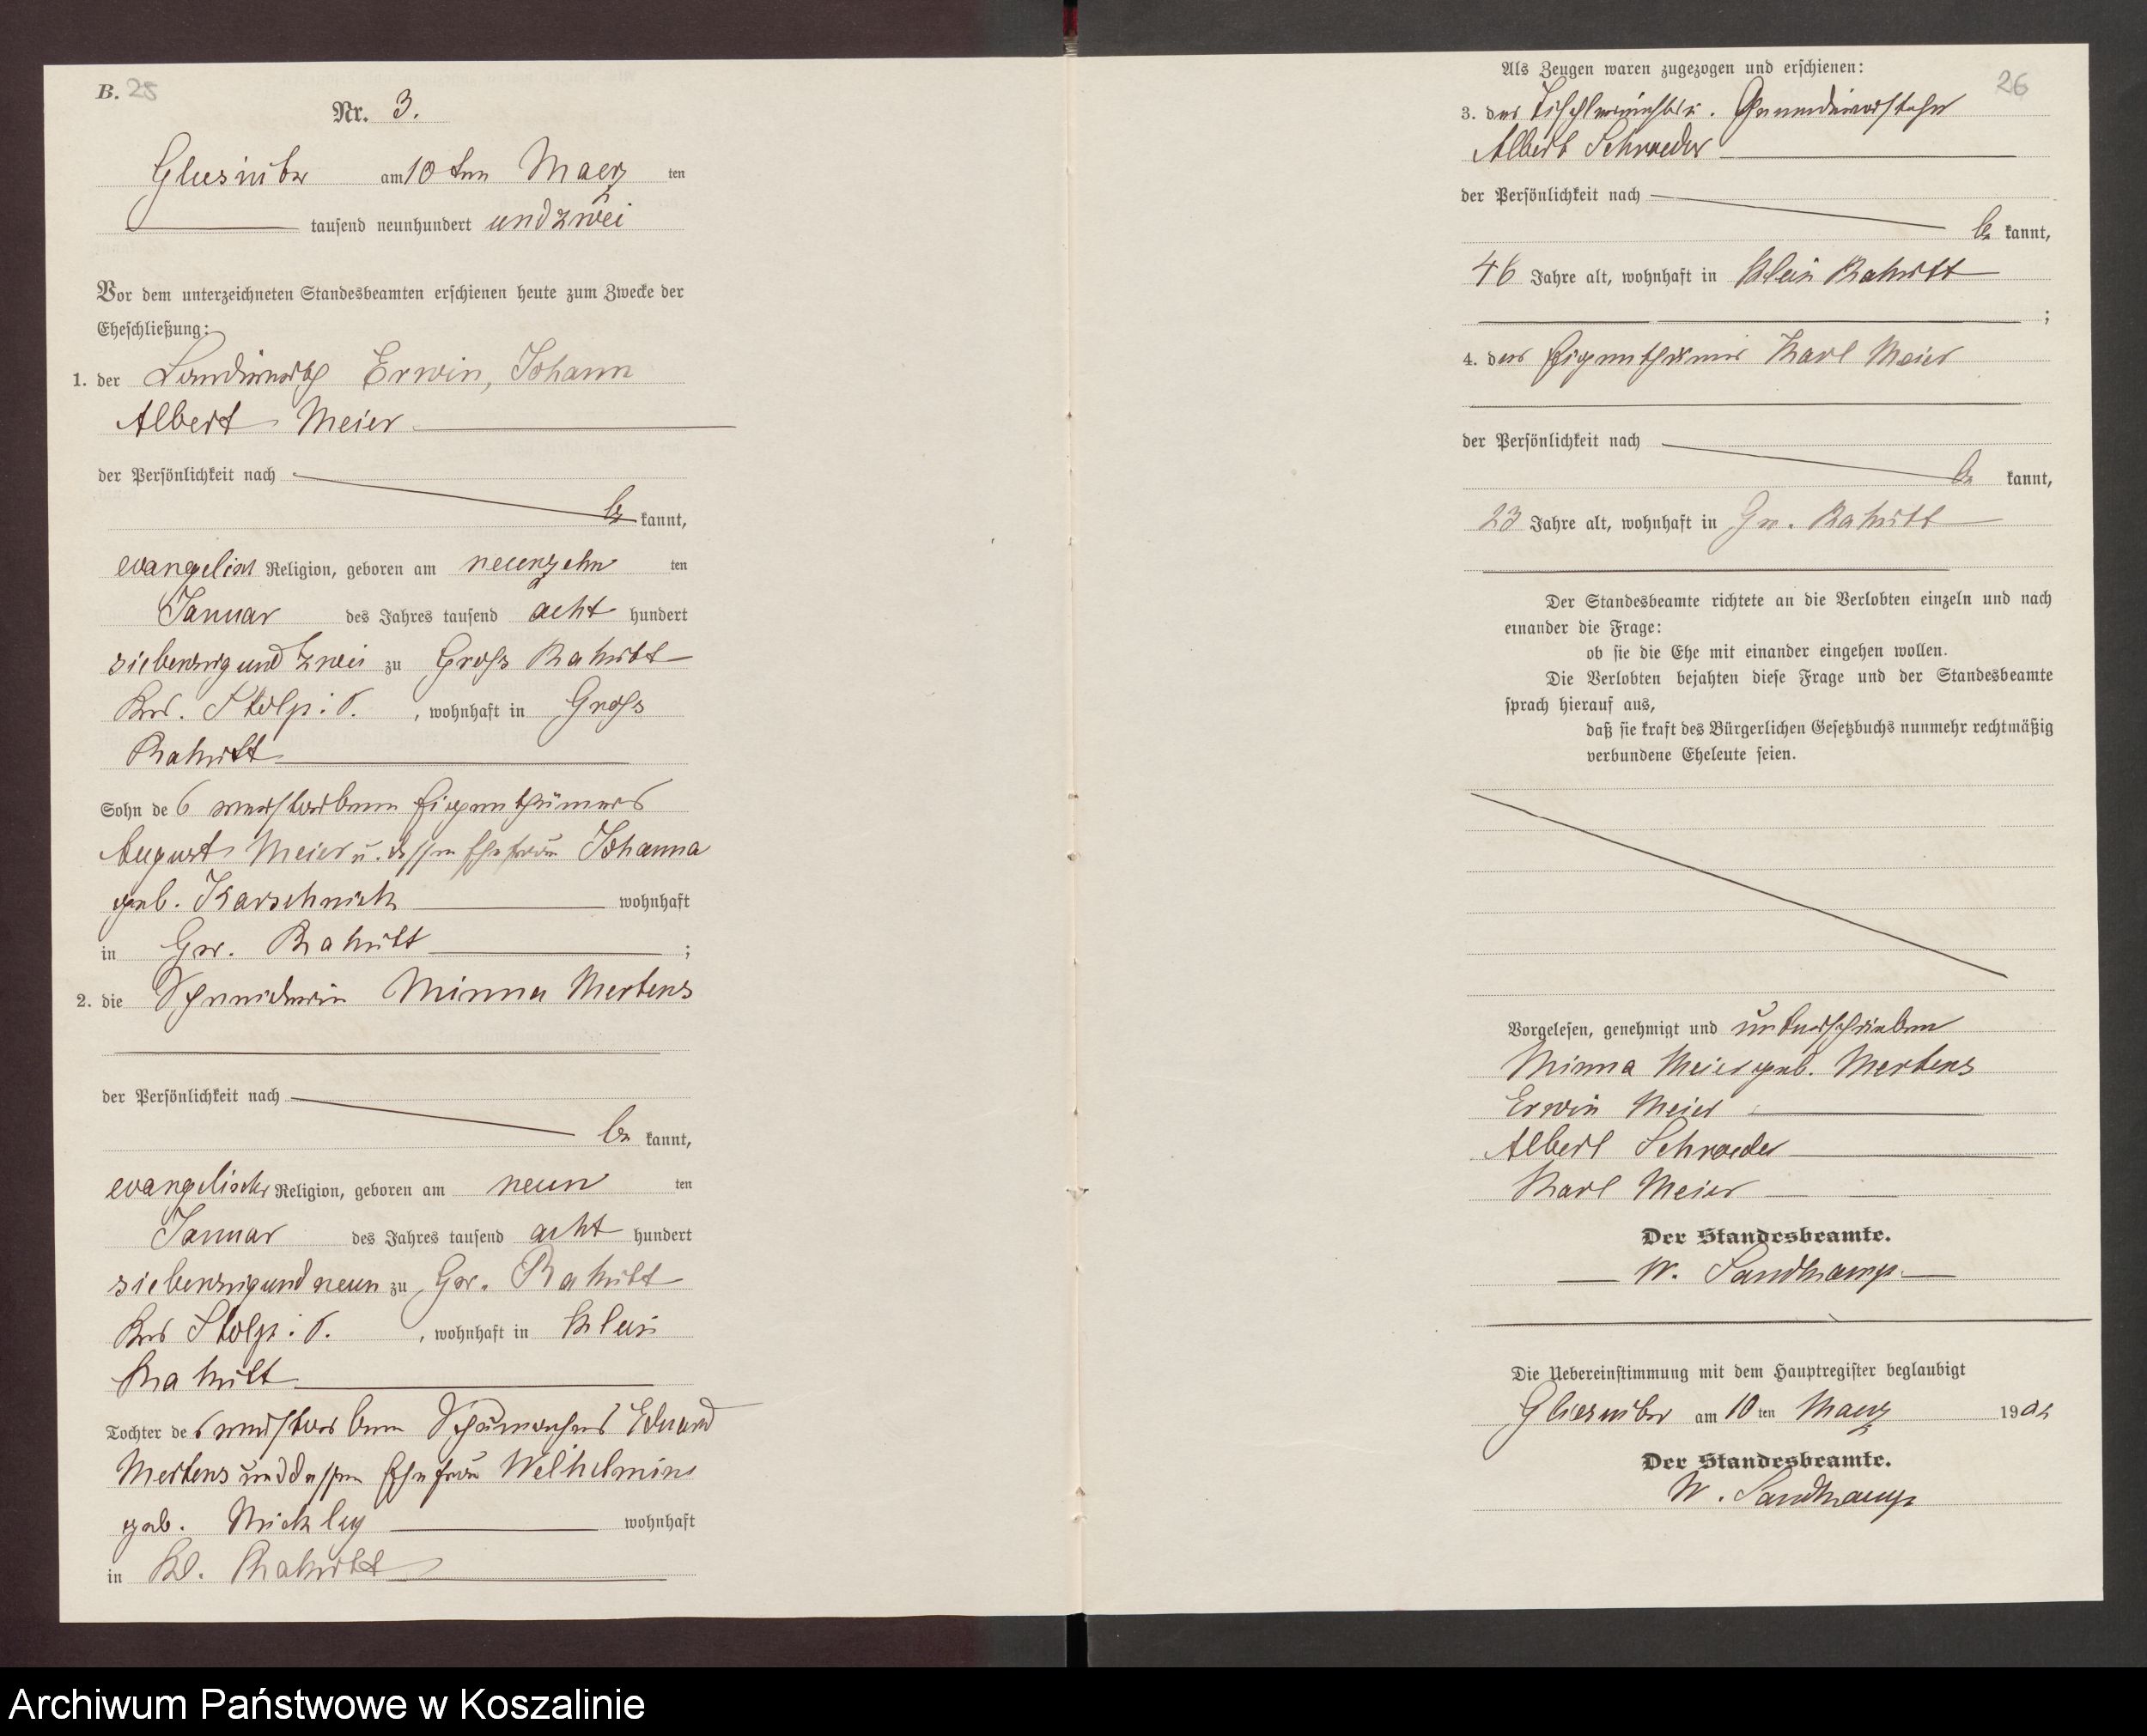 B. 25
Nr. 3.
Glusinke am 10 ten Maerz ten
tausend neunhundert und zwei
Vor dem unterzeichneten Standesbeamten erschienen heute zum Zwecke der
Eheschließung:
1. der Landwirth Erwin, Johann
Albert Meier
der Persönlichkeit nach
be kannt,
evangelisch Religion, geboren am neunzehn ten
Januar des Jahres tausend acht hundert
siebenzig und zwei zu Gross
Krs. Stolp i. P. , wohnhaft in Gross
Sohn des verstorbenen Eigenthümers
August Meier u. dessen Ehefrau Johanna
geb. Karschnick wohnhaft
in Gr. ;
2. die Schneiderin Minna Mertens
der Persönlichkeit nach
be kannt,
evangelischer Religion, geboren am neun ten
Januar des Jahres tausend acht hundert
siebenzig und neun zu Gr.
Krs Stolp i. P. , wohnhaft in Klein
Tochter des verstorbenen Eduard
Mertens und dessen Ehefrau Wilhelmine
geb. wohnhaft
in Kl.
26
Als Zeugen waren zugezogen und erschienen:
3. der Tischlermeister u. Gemeindevorsteher
Albert Schroeder
der Persönlichkeit nach
be kannt,
46 Jahre alt, wohnhaft in Klein
;
4. der Eigenthümer Karl Meier
der Persönlichkeit nach
be kannt,
23 Jahre alt, wohnhaft in Gr.
Der Standesbeamte richtete an die Verlobten einzeln und nach
einander die Frage:
ob sie die Ehe mit einander eingehen wollen.
Die Verlobten bejahten diese Frage und der Standesbeamte
sprach hierauf aus,
daß sie kraft des Bürgerlichen Gesetzbuchs nunmehr rechtmäßig
verbundene Eheleute seien.
Vorgelesen, genehmigt und unterschrieben
Minna Meier geb. Mertens
Erwin Meier
Albert Schroeder
Karl Meier
Der Standesbeamte.
W. Sandkamp
Die Uebereinstimmung mit dem Hauptregister beglaubigt
am 10 ten Maerz 1902
Der Standesbeamte.
W. Sandkamp
Archiwum Państwowe w Koszalinie